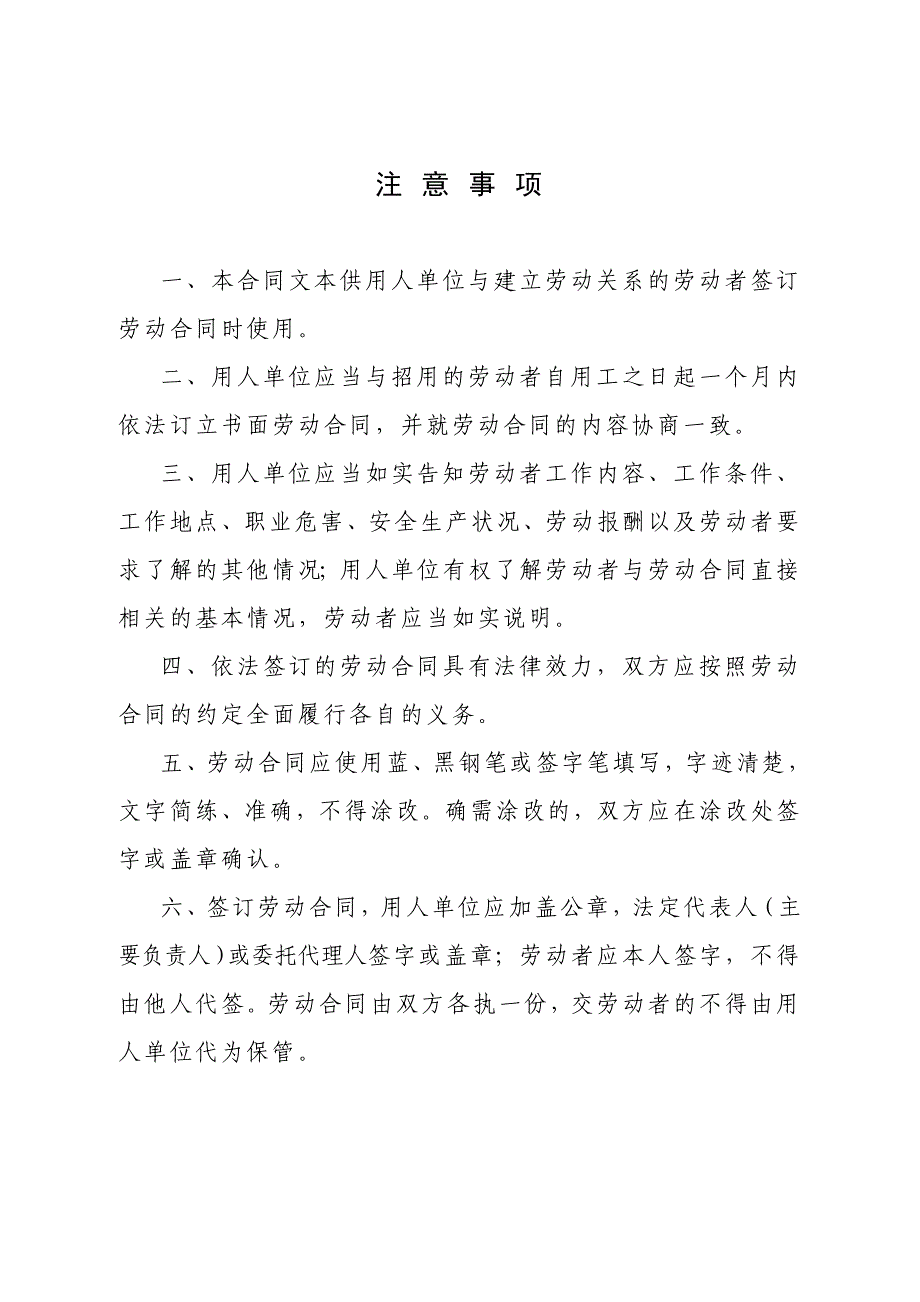 注意事项
一、本合同文本供用人单位与建立劳动关系的劳动者签订
劳动合同时使用。
二、用人单位应当与招用的劳动者自用工之日起一个月内
依法订立书面劳动合同，并就劳动合同的内容协商一致。
三、用人单位应当如实告知劳动者工作内容、工作条件、
工作地点、职业危害、安全生产状况、劳动报酬以及劳动者要
求了解的其他情况；用人单位有权了解劳动者与劳动合同直接
相关的基本情况，劳动者应当如实说明。
四、依法签订的劳动合同具有法律效力，双方应按照劳动
合同的约定全面履行各自的义务。
五、劳动合同应使用蓝、黑钢笔或签字笔填写，字迹清楚，
文字简练、准确，不得涂改。确需涂改的，双方应在涂改处签
字或盖章确认。
六、签订劳动合同，用人单位应加盖公章，法定代表人（主
要负责人）或委托代理人签字或盖章；劳动者应本人签字，不得
由他人代签。劳动合同由双方各执一份，交劳动者的不得由用
人单位代为保管。